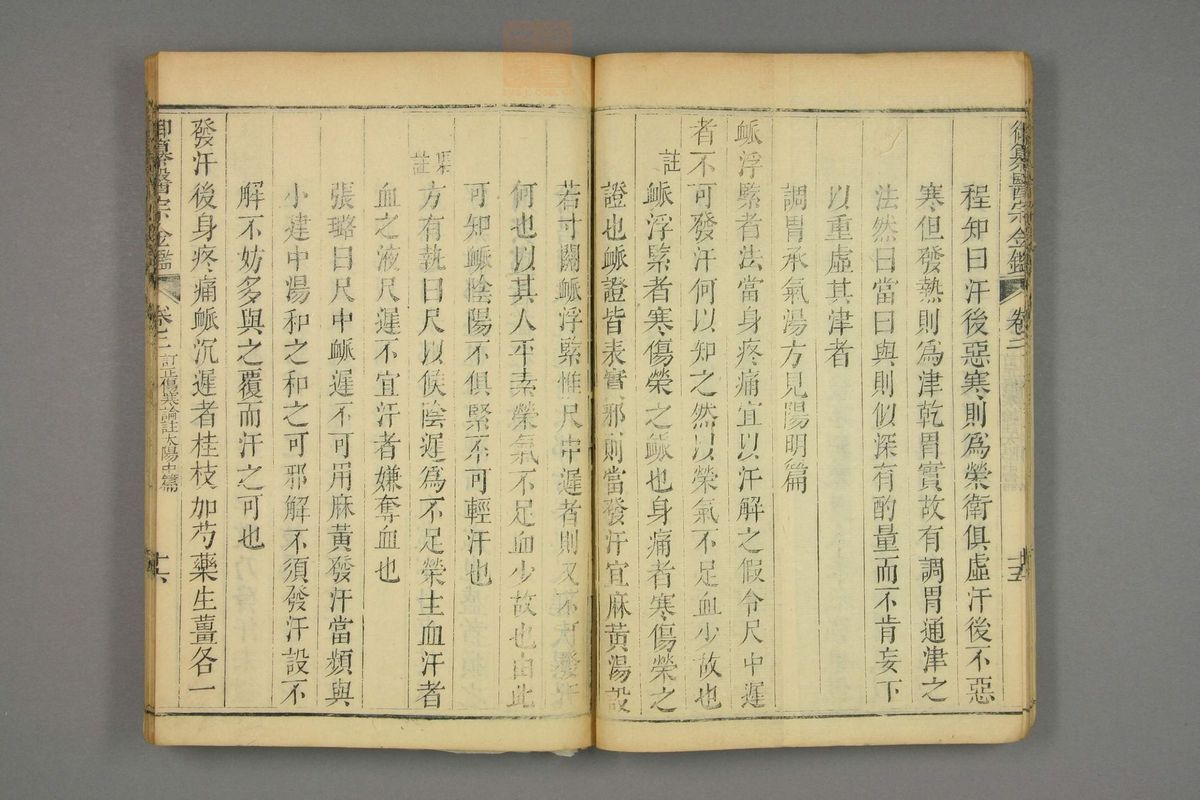 御纂醫宗金鑑 卷二
程知曰汗後惡寒則爲榮衛俱虛汗後不惡
寒但發熱則爲津乾胃實故有調胃通津之
法然曰當曰與則似深有酌量而不肯妄下
以重虛其津者
調胃承氣湯方見陽明篇
脈浮緊者法當身疼痛宜以汗解之假令尺中遲
者不可發汗何以知之然以榮氣不足血少故也
註 脈浮緊者寒傷榮之脈也身痛者寒傷榮之
證也脈證皆表實邪則當發汗宜麻黃湯設
若寸關脈浮緊惟尺中遲者則又不可發汗
何也以其人平素榮氣不足血少故也由此
可知脈陰陽不俱緊不可輕汗也
集註 方有執曰尺以候陰遲爲不足榮主血汗者
血之液尺遲不宜汗者嫌奪血也
張璐曰尺中脈遲不可用麻黃發汗當頻與
小建中湯和之和之可邪解不須發汗設不
解不妨多與之覆而汗之可也
發汗後身疼痛脈沉遲者桂枝加芍藥生薑各一
御纂醫宗金鑑 卷二 訂正傷寒論註太陽中篇